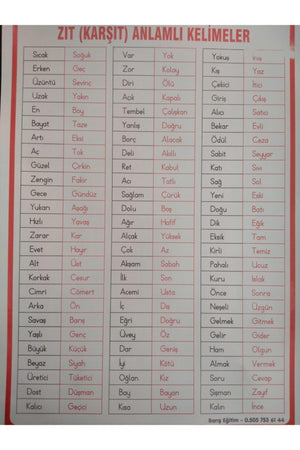 ZIT (KARŞIT) ANLAMLI KELİMELER
Sıcak Soğuk Var Yok Yokuş İniş
Erken Geç Zor Kolay Kış Yaz
Üzüntü Sevinç Diri Ölü Çekici İtici
Uzak Yakın Açık Kapalı Giriş Çıkış
En Boy Tembel Çalışkan Alıcı Satıcı
Bayat Taze Yanlış Doğru Bekar Evli
Artı Eksi Borç Alacak Ödül Ceza
Aç Tok Deli Akıllı Sabit Seyyar
Güzel Çirkin Ret Kabul Katı Sıvı
Zengin Fakir Acı Tatlı Sağ Sol
Gece Gündüz Sağlam Çürük Yeni Eski
Yukarı Aşağı Dolu Boş Doğu Batı
Hızlı Yavaş Ağır Hafif Dik Eğik
Zarar Kar Alçak Yüksek Eksik Tam
Evet Hayır Çok Az Kirli Temiz
Alt Üst Akşam Sabah Pahalı Ucuz
Korkak Cesur İlk Son Kuru Islak
Cimri Cömert Acemi Usta Önce Sonra
Arka Ön İç Dış Neşeli Üzgün
Savaş Barış Eğri Doğru Gelmek Gitmek
Yaşlı Genç Üvey Öz Gelir Gider
Büyük Küçük Dar Geniş Ham Olgun
Beyaz Siyah İyi Kötü Almak Vermek
Üretici Tüketici Oğlan Kız Soru Cevap
Dost Düşman Bay Bayan Şişman Zayıf
Kalıcı Geçici Kısa Uzun Kalın İnce
Barış Eğitim - 0.505 753 61 44